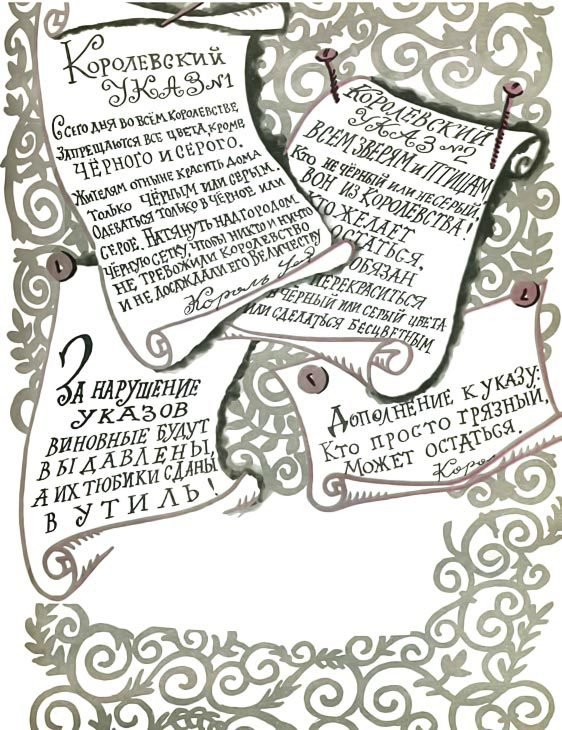 Королевский
Указ №1
С сего дня во всём королевстве
Запрещаются все цвета, кроме
чёрного и серого.
Жителям отныне красить дома
только чёрным или серым.
Одеваться только в чёрное или
серое. Натянуть над городом
чёрную сетку, чтобы никто и ничто
не тревожили королевство
и не досаждали его величеству
Король
Королевский
Указ №2
Всем зверям и птицам
Кто не чёрный или несерый,
вон из королевства!
то желает
остаться,
обязан
перекраситься
в чёрный или серый цвета
или сделаться бесцветным
За нарушение
указов
виновные будут
выдавлены,
а их тюбики сданы
в утиль!
Дополнение к указу:
Кто просто грязный,
может остаться.
Коро